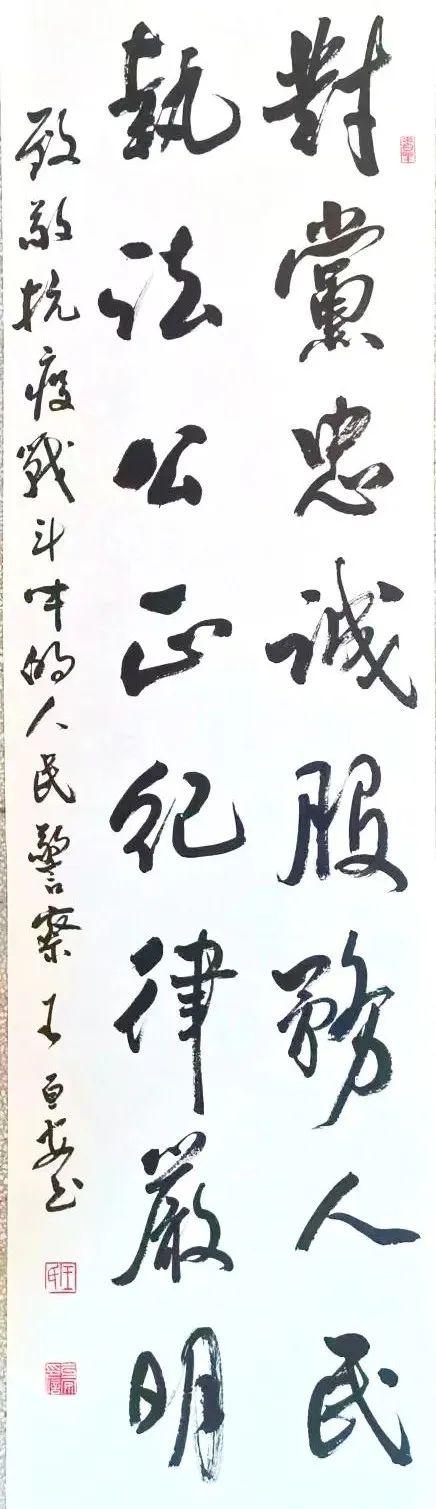 對黨忠誠服務人民
執法公正紀律嚴明
致敬抗疫戰斗中的人民警察 王